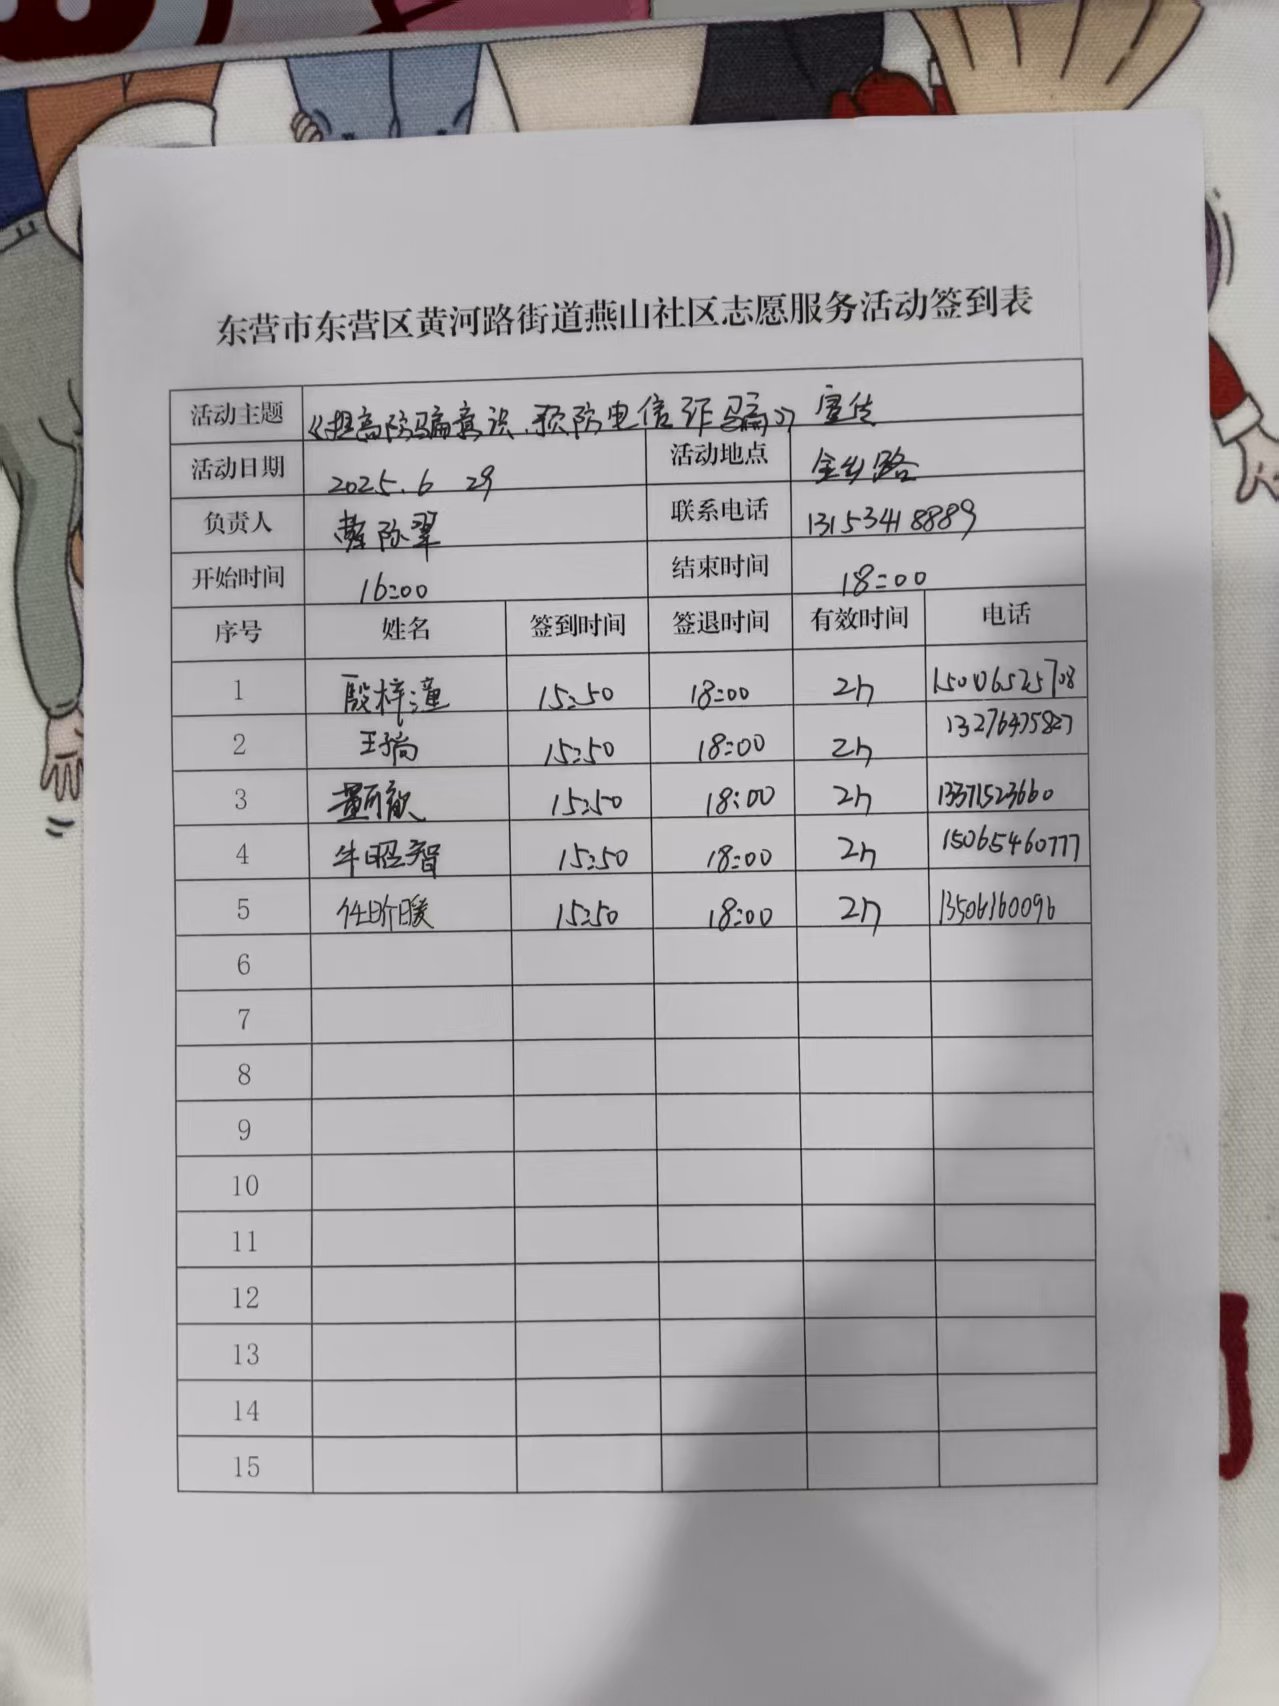 东营市东营区黄河路街道燕山社区志愿服务活动签到表
活动主题 《提高防骗意识,预防电信诈骗》宣传
活动日期 2025.6 29 活动地点 金乡路
负责人 联系电话 13153418889
开始时间 16:00 结束时间 18:00
序号 姓名 签到时间 签退时间 有效时间 电话
1 殷梓潼 15:50 18:00 2h 15006525708
2 15:50 18:00 2h 13276475827
3 15:50 18:00 2h 13371523660
4 牛昭智 15:50 18:00 2h 15065460777
5 任昕暖 15:50 18:00 2h 13506160096
6
7
8
9
10
11
12
13
14
15